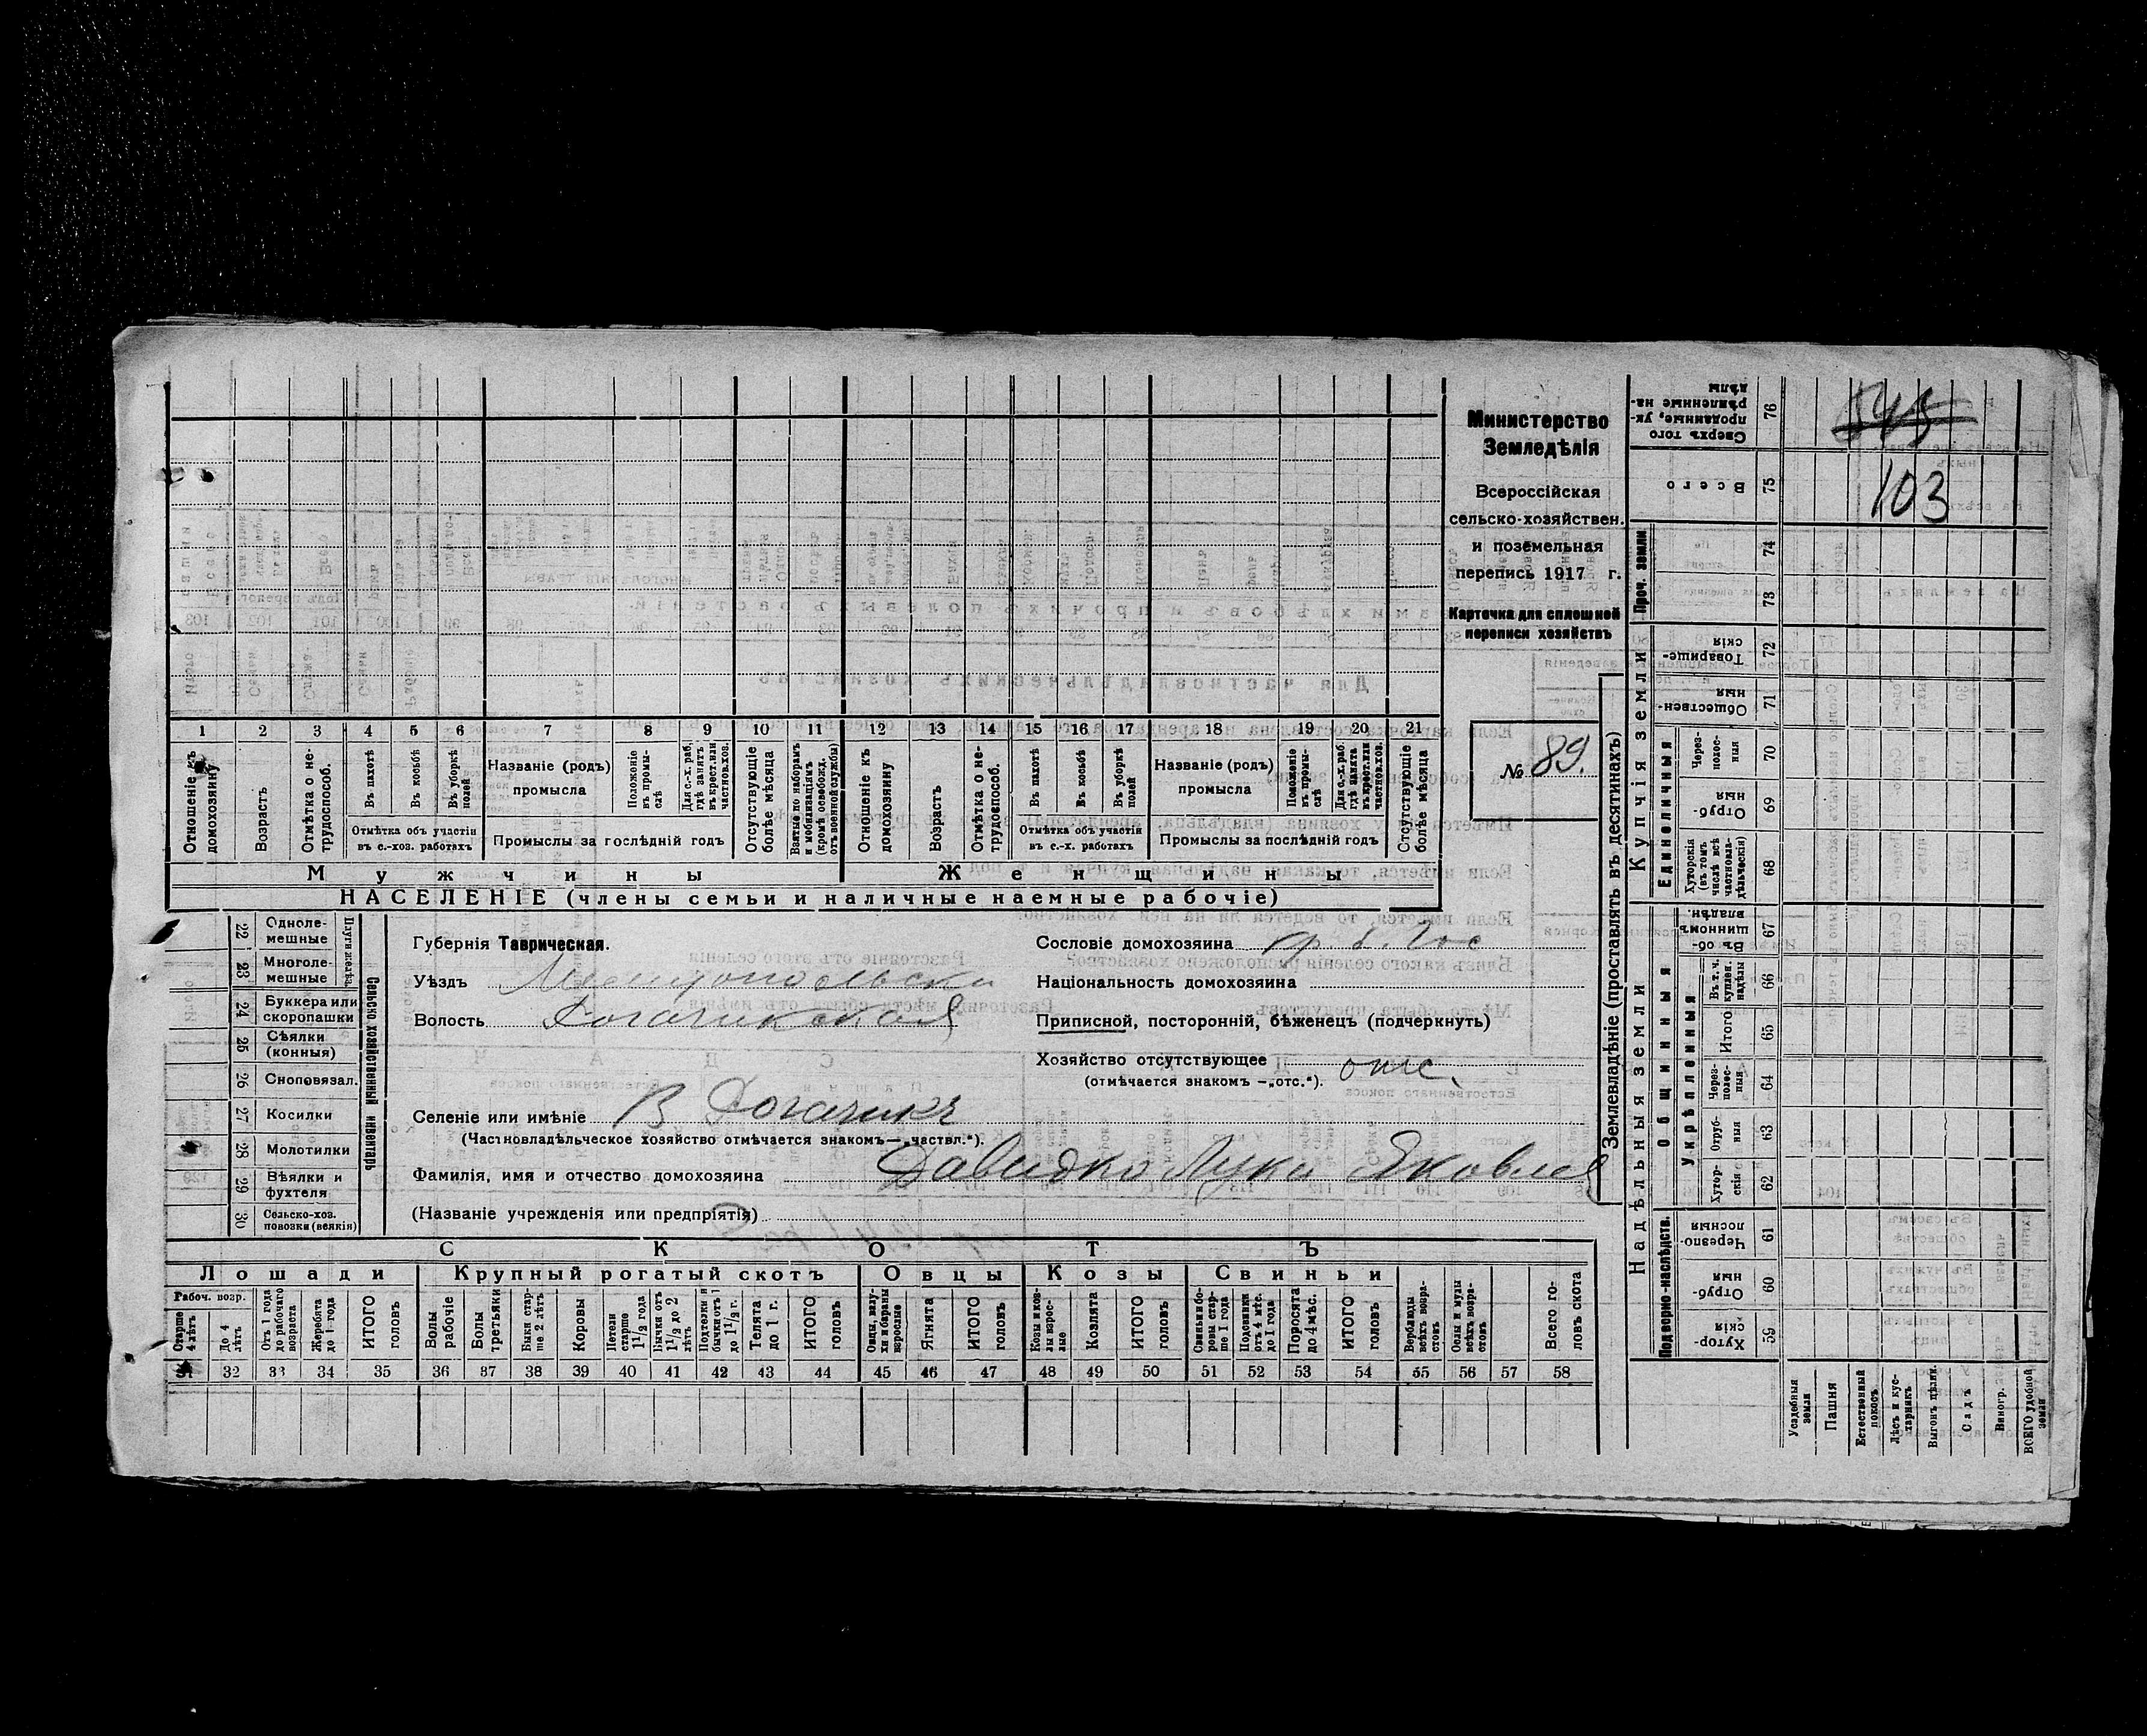 Министерство
Земледѣлія
Всероссійская
сельско-хозяйствен.
и поземельная
перепись 1917 г.
Карточка для сплошной
переписи хозяйствъ
№ 89.
1 2 3 4 5 6 7 8 9 10 11 12 13 14 15 16 17 18 19 20 21
Отношеніе къ домохозяину
Возрастъ
Отмѣтка о не-трудоспособ.
Въ пахотѣ
Въ косьбѣ
Въ уборкѣ полей
Отмѣтка объ участіи въ с.-хоз. работахъ
Названіе (родъ) промысла
Положеніе въ промы-слѣ
Для с.-х. раб. гдѣ занятъ въ крест. или частнов. хоз.
Промыслы за послѣдній годъ
Отсутствующіе болѣе мѣсяца
Взятые по наборамъ и мобилизаціямъ (кромѣ освобожд. отъ военной службы)
Отношеніе къ домохозяину
Возрастъ
Отмѣтка о не-трудоспособ.
Въ пахотѣ
Въ косьбѣ
Въ уборкѣ полей
Отмѣтка объ участіи въ с.-х. работахъ
Названіе (родъ) промысла
Положеніе въ промы-слѣ
Для с.-х. раб. гдѣ занята въ крест. или частнов. хоз.
Промыслы за послѣдній годъ
Отсутствующіе болѣе мѣсяца
Мужчины Женщины
НАСЕЛЕНІЕ (члены семьи и наличные наемные рабочіе)
Сельско-хозяйственный инвентарь
22 Одноле-мешные
23 Многоле-мешные
24 Буккера или скоропашки
25 Сѣялки (конныя)
26 Сноповязал.
27 Косилки
28 Молотилки
29 Вѣялки и фухтеля
30 Сельско-хоз. повозки (всякія)
Губернія Таврическая.
Уѣздъ
Волость Рогачикская
Селеніе или имѣніе В Рогачикъ
(Частновладѣльческое хозяйство отмѣчается знакомъ—„частвл.“).
Фамилія, имя и отчество домохозяина Давидко Лука Яковлев
(Названіе учрежденія или предпріятія)
Сословіе домохозяина
Національность домохозяина
Приписной, посторонній, бѣженецъ (подчеркнуть)
Хозяйство отсутствующее отс.
(отмѣчается знакомъ —„отс.“).
СКОТЪ
Лошади Крупный рогатый скотъ Овцы Козы Свиньи
Рабоч. возр.
Старше 4 лѣтъ
До 4 лѣтъ
Отъ 1 года до рабочаго возраста
Жеребята до 1 года
ИТОГО головъ
Волы рабочіе
Волы третьяки
Быки стар-ше 2 лѣтъ
Коровы
Нетели старше 1½ года
Бычки отъ 1½ до 2 лѣтъ
Подтелки и бычки отъ 1 до 1½ г.
Телята до 1 г.
ИТОГО головъ
Овцы, валу-хи и бараны взрослые
Ягнята
ИТОГО головъ
Козы и коз-лы взрос-лые
Козлята
ИТОГО головъ
Свиньи и бо-ровы стар-ше 1 года
Подсвинки отъ 4 мѣс. до 1 года
Поросята до 4 мѣс.
ИТОГО головъ
Верблюды всѣхъ возра-стовъ
Ослы и мулы всѣхъ возра-стовъ
Всего го-ловъ скота
31 32 33 34 35 36 37 38 39 40 41 42 43 44 45 46 47 48 49 50 51 52 53 54 55 56 57 58
Землевладѣніе (проставлять въ десятинахъ)
Сверхъ того проданные, ук-рѣпленные на-дѣлы 76
Всего 75
103
Проч. земли 74 73
Купчія земли
Товарище-скія 72
Обществен-ныя 71
Единоличныя
Через-полос-ныя 70
Отруб-ныя 69
Хуторскія (въ томъ числѣ всѣ частновла-дѣльческія) 68
Надѣльныя земли
Общинныя
Въ об-щинномъ владѣн. 67
Укрѣпленныя
Въ т. ч. куплен. надѣлы 66
Итого 65
Через-полос-ныя 64
Отруб-ныя 63
Хутор-скія 62
Подворно-наслѣдств.
Черезпо-лосныя 61
Отруб-ныя 60
Хутор-скія 59
Усадебныя земли
Пашня
Естественный покосъ
Лѣсъ и кус-тарникъ
Выгонъ цѣлин.
Садъ
Виногр.
ВСЕГО удобной земли